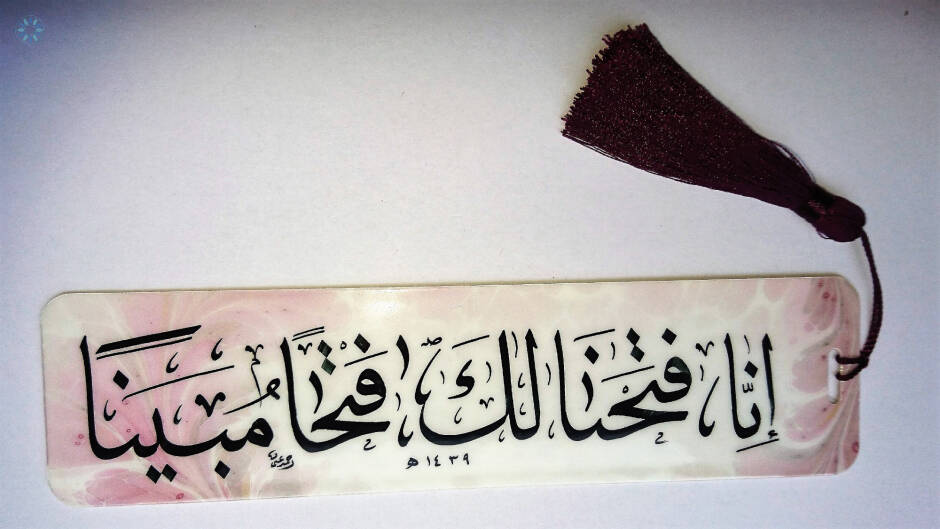 إِنَّا فَتَحْنَا لَكَ فَتْحًا مُبِينًا
١٤٣٩ هـ